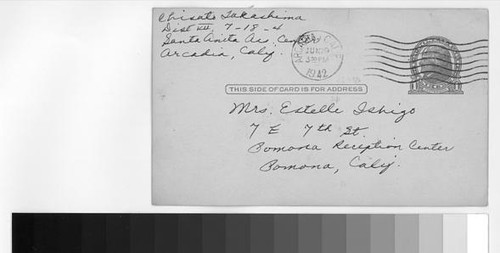 Chisato Takashima
Dist VII, 7-18-4
Santa Anita As. Center
Arcadia, Calif.
1942
THIS SIDE OF CARD IS FOR ADDRESS
Mrs. Estelle Ishigo
7 E 7th St.
Pomona Reception Center
Pomona, Calif.